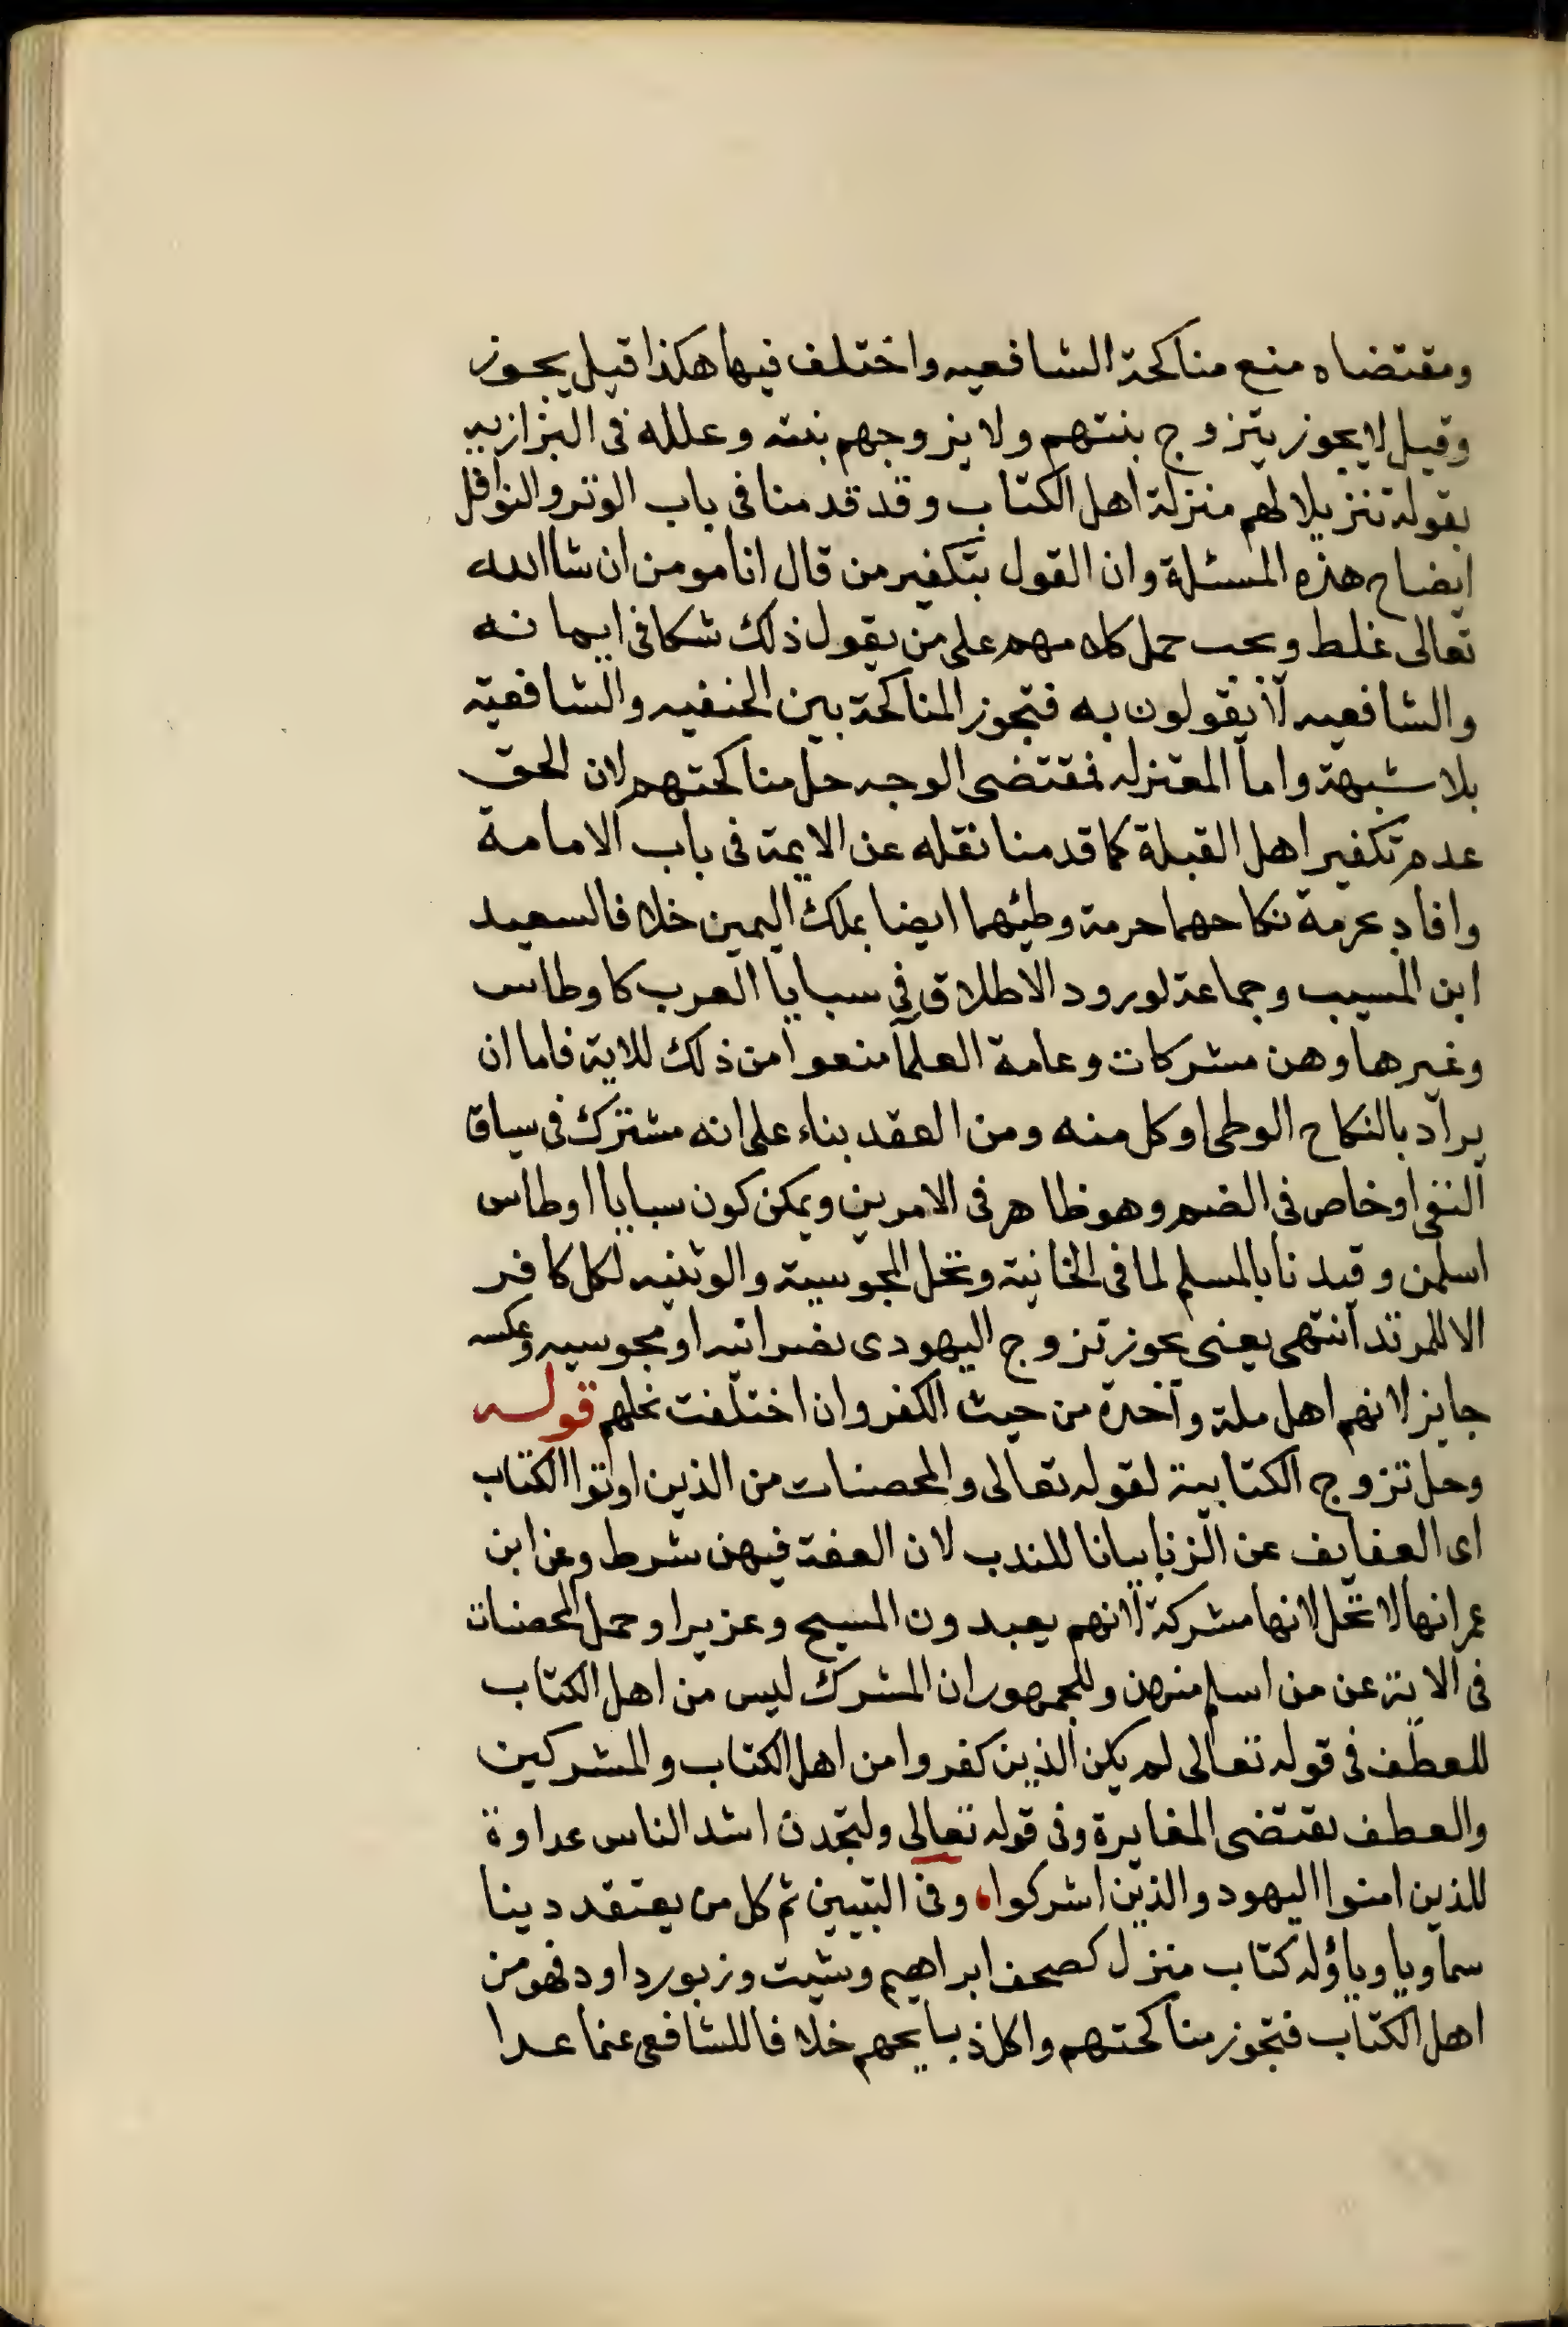 ومقتضاه منع مناكحة الشافعيه واختلف فيها هكذا قيل يجوز
وقيل لا يجوز يتزوج بنتهم ولا يزوجهم بنته وعلله فى البزازيه
بقوله تنزيلا لهم منزلة اهل الكتاب وقد قدمنا فى باب الوتر والنوافل
ايضاح هذه المسئلة وان القول بتكفير من قال انا مومن ان شاالله
تعالى غلط ويجب حمل كلامهم على من يقول ذلك شكا فى ايمانه
والشافعيه لا يقولون به فتجوز المناكحة بين الحنفيه والشافعية
بلا شبهة واما المعتزله فمقتضى الوجه حل مناكحتهم لان الحق
عدم تكفير اهل القبلة كما قدمنا نقله عن الايمة فى باب الامامة
وافاد بحرمة نكاحهما حرمة وطيهما ايضا بملك اليمين خلافا لسعيد
ابن المسيب وجماعة لورود الاطلاق فى سبايا العرب كاوطاس
وغيرها وهن مشركات وعامة العلمآ منعوا من ذلك للاية فاما ان
يراد بالنكاح الوطى او كل منه ومن العقد بناء على انه مشترك فى سياق
النفى او خاص فى الضم وهو ظاهر فى الامرين ويمكن كون سبايا اوطاس
اسلمن وقيدنا بالمسلم لما فى الخانية وتحل المجوسية والوثنيه لكل كافر
الا للمرتد انتهى يعنى يجوز تزوج اليهودى نصرانيه او مجوسيه وعكسه
جايز لانهم اهل ملة واحدة من حيث الكفر وان اختلفت نحلهم قوله
وحل تزوج الكتابية لقوله تعالى والمحصنات من الذين اوتوا الكتاب
اى العفايف عن الزنا بيانا للندب لان العفة فيهن شرط وعن ابن
عمر انها لا تحل لانها مشركة لانهم يعبدون المسيح وعزيرا وحمل المحصنات
فى الاية عن من اسلم منهن وللجمهور ان المشرك ليس من اهل الكتاب
للعطف فى قوله تعالى لم يكن الذين كفروا من اهل الكتاب والمشركين
والعطف يقتضى المغايرة وفى قوله تعالى ولتجدن اشد الناس عداوة
للذين امنوا اليهود والذين اشركوا، وفى التبيين ثم كل من يعتقد دينا
سماويا وياؤله كتاب منزل كصحف ابراهيم وشيت وزبور داود فهو من
اهل الكتاب فتجوز مناكحتهم واكل ذبايحهم خلافا للشافعى عنما عدا